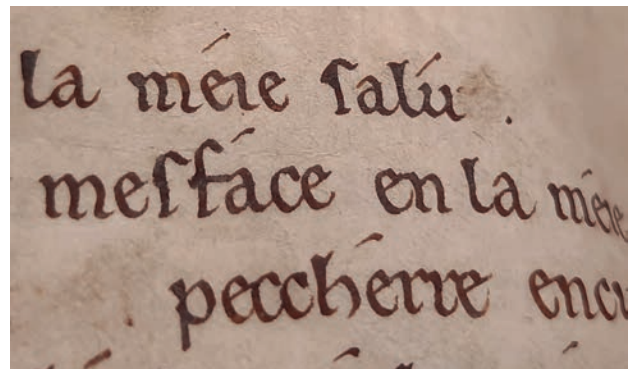 la méie salú .
mesfáce en la méie
pecchérre encu